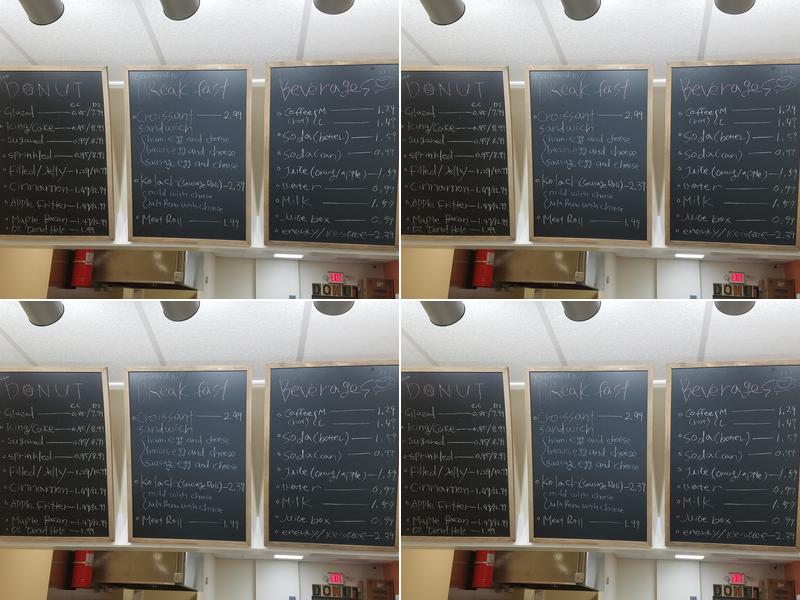 DONUT
ea DZ
Glazed 7.99
Icing/Cake 0.95/8.99
Sugared 0.95/8.99
Sprinkled 0.95/8.99
Filled/Jelly
Cinnamon
Apple Fritter
Maple Bacon
DZ Donut Hole 1.99
Breakfast
Croissant 2.99
Sandwich
ham egg and cheese
bacon egg and cheese
sausage egg and cheese
Kolach (Sausage Roll) 2.39
mild with cheese
Jalapeno with cheese
Meat Roll 1.99
Beverages
Coffee M 1.29
(hot) L 1.49
Soda (bottel) 1.59
Soda (can) 0.99
Juice (orang/apple) 1.59
Water 0.99
Milk 1.59
Juice box 0.99
energy/ 2.39
EXIT
DONUT
ea DZ
Glazed 7.99
Icing/Cake 0.95/8.99
Sugared 0.95/8.99
Sprinkled 0.95/8.99
Filled/Jelly
Cinnamon
Apple Fritter
Maple Bacon
DZ Donut Hole 1.99
Breakfast
Croissant 2.99
Sandwich
ham egg and cheese
bacon egg and cheese
sausage egg and cheese
Kolach (Sausage Roll) 2.39
mild with cheese
Jalapeno with cheese
Meat Roll 1.99
Beverages
Coffee M 1.29
(hot) L 1.49
Soda (bottel) 1.59
Soda (can) 0.99
Juice (orang/apple) 1.59
Water 0.99
Milk 1.59
Juice box 0.99
energy/ 2.39
EXIT
DONUT
ea DZ
Glazed 7.99
Icing/Cake 0.95/8.99
Sugared 0.95/8.99
Sprinkled 0.95/8.99
Filled/Jelly
Cinnamon
Apple Fritter
Maple Bacon
DZ Donut Hole 1.99
Breakfast
Croissant 2.99
Sandwich
ham egg and cheese
bacon egg and cheese
sausage egg and cheese
Kolach (Sausage Roll) 2.39
mild with cheese
Jalapeno with cheese
Meat Roll 1.99
Beverages
Coffee M 1.29
(hot) L 1.49
Soda (bottel) 1.59
Soda (can) 0.99
Juice (orang/apple) 1.59
Water 0.99
Milk 1.59
Juice box 0.99
energy/ 2.39
EXIT
DONUT
ea DZ
Glazed 7.99
Icing/Cake 0.95/8.99
Sugared 0.95/8.99
Sprinkled 0.95/8.99
Filled/Jelly
Cinnamon
Apple Fritter
Maple Bacon
DZ Donut Hole 1.99
Breakfast
Croissant 2.99
Sandwich
ham egg and cheese
bacon egg and cheese
sausage egg and cheese
Kolach (Sausage Roll) 2.39
mild with cheese
Jalapeno with cheese
Meat Roll 1.99
Beverages
Coffee M 1.29
(hot) L 1.49
Soda (bottel) 1.59
Soda (can) 0.99
Juice (orang/apple) 1.59
Water 0.99
Milk 1.59
Juice box 0.99
energy/ 2.39
EXIT